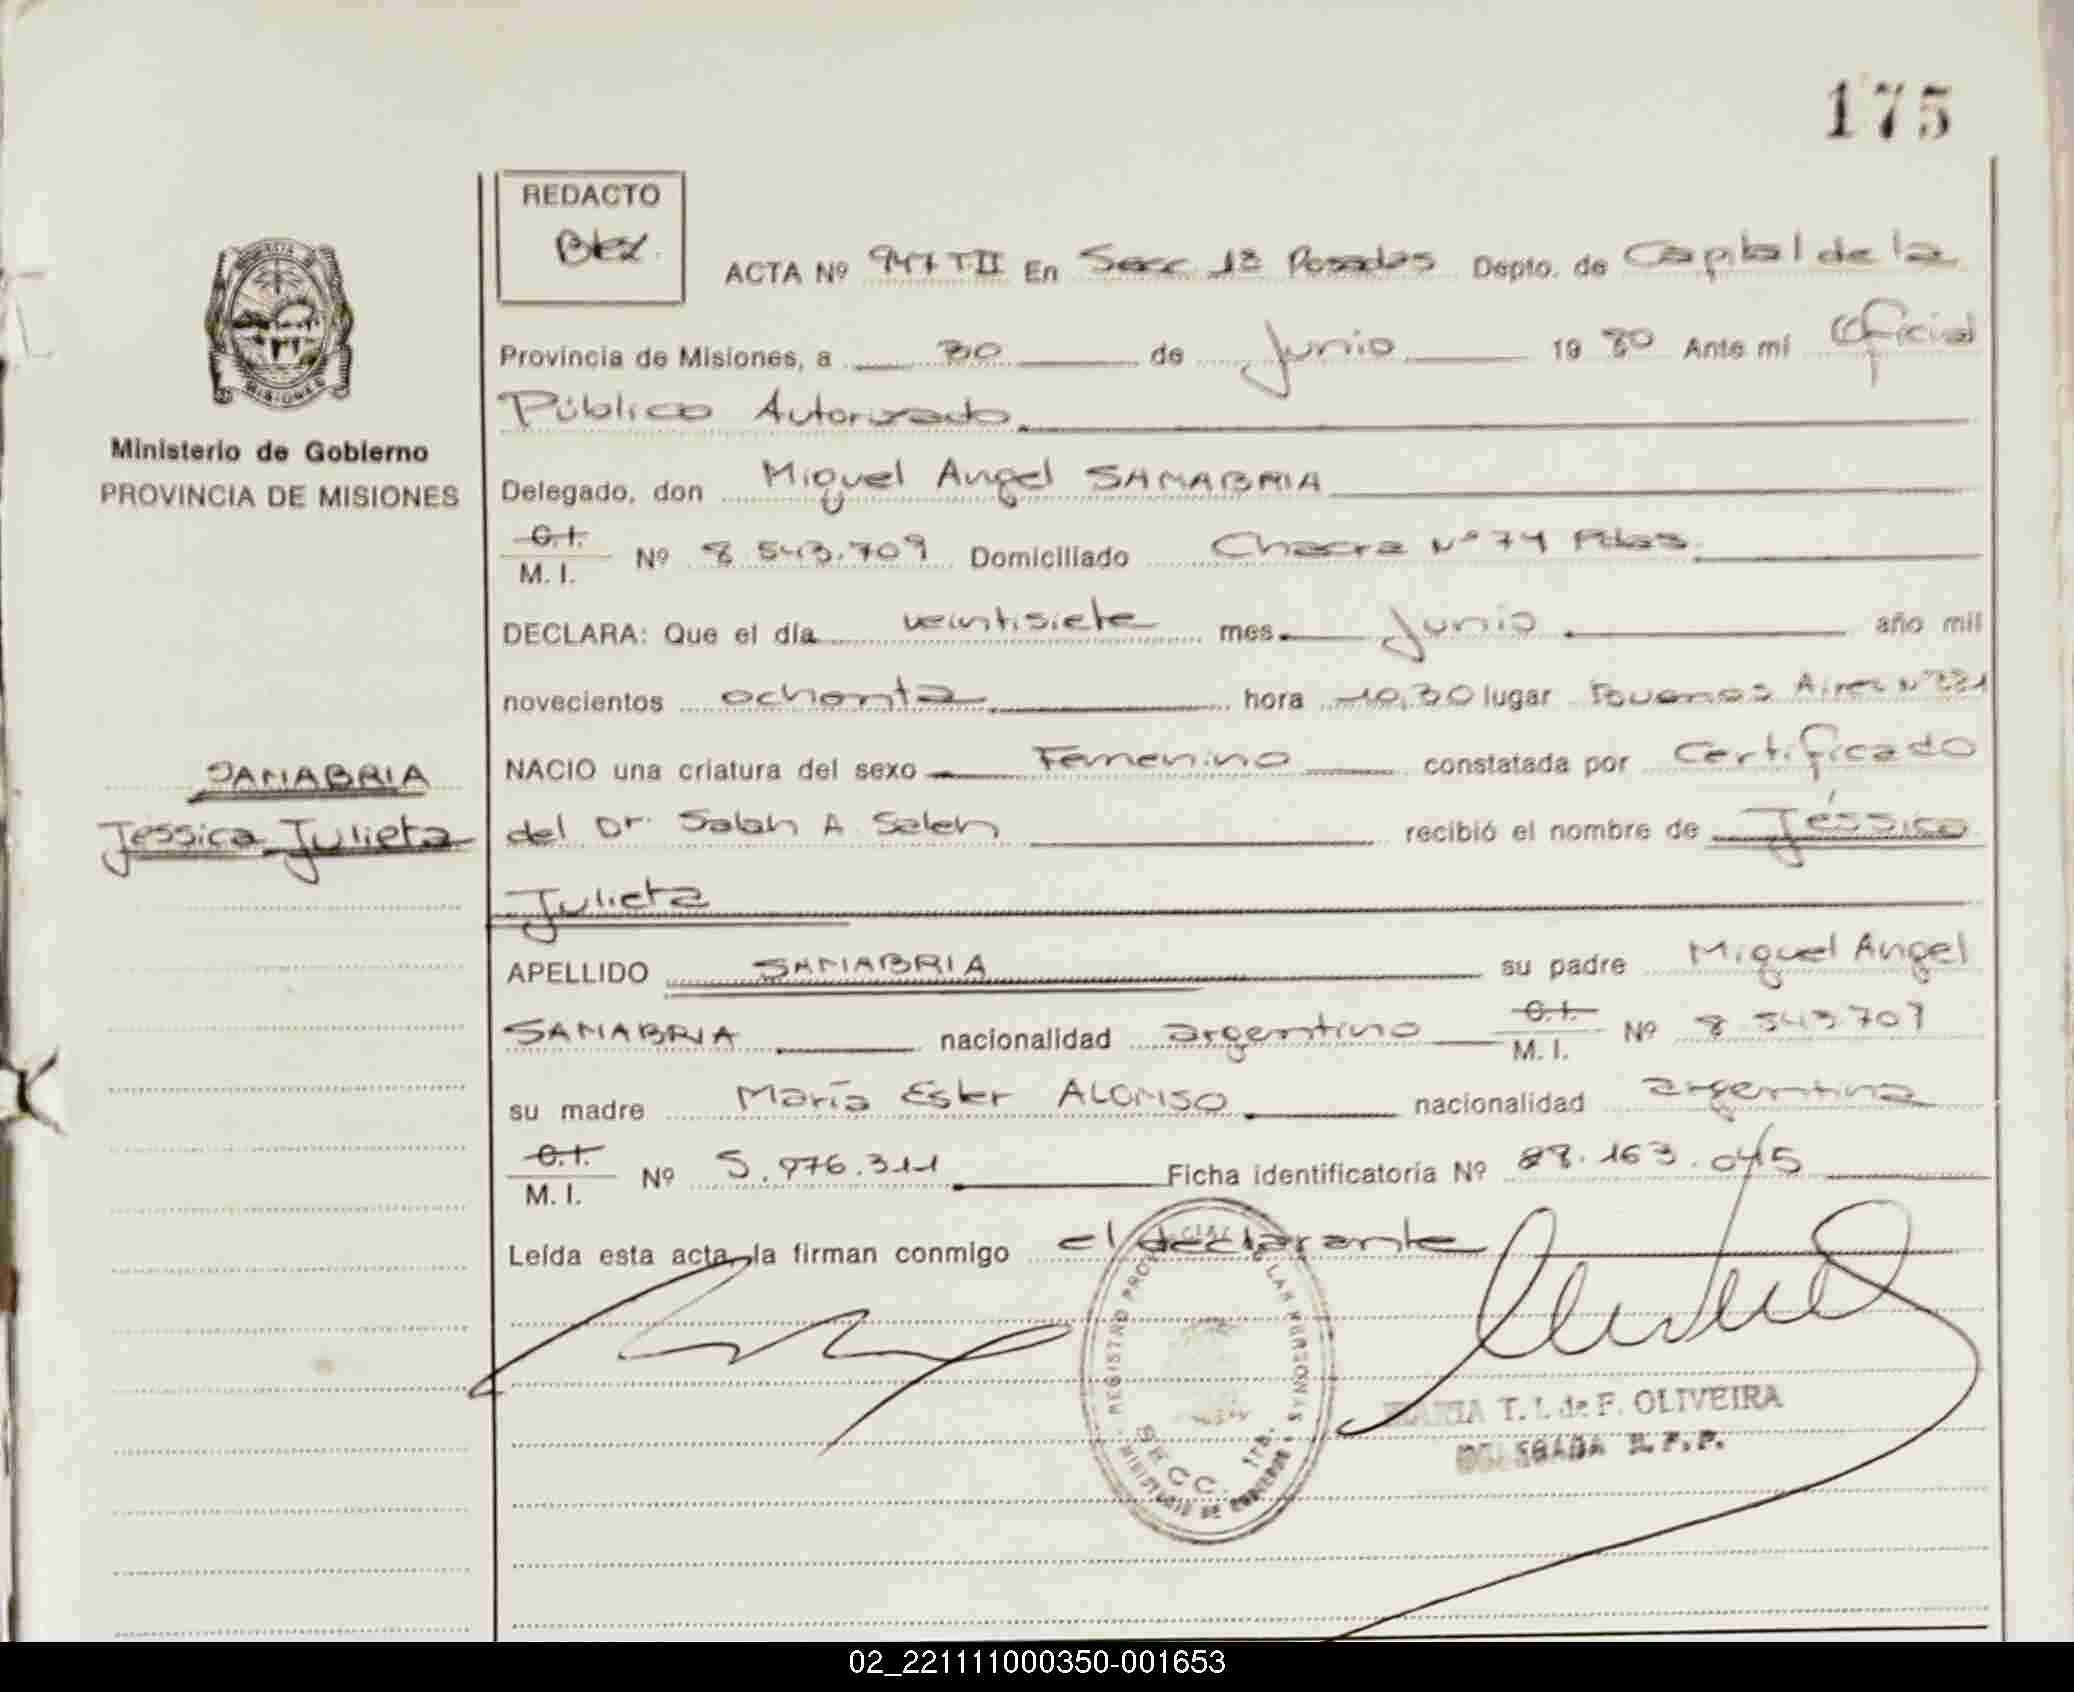 175
REDACTO
ACTA Nº 947 TII En Secc 1ª Posadas Depto. de Capital de la
Provincia de Misiones, a 30 de Junio 1980 Ante mí Oficial
Público Autorizado
Ministerio de Gobierno
PROVINCIA DE MISIONES
Delegado, don Miguel Angel SAMABRIA
C.I.
M. I. Nº 8.543.709 Domiciliado Chacra Nº 74 Pdas.
DECLARA: Que el día veintisiete mes Junio año mil
novecientos ochenta hora 10,30 lugar Buenos Aires Nº
SAMABRIA
Jéssica Julieta
NACIO una criatura del sexo Femenino constatada por Certificado
del Dr. Salah A Saleh recibió el nombre de Jéssica
Julieta
APELLIDO SAMABRIA su padre Miguel Angel
SAMABRIA nacionalidad argentino C.I.
M. I. Nº 8.543.709
su madre María Ester ALONSO nacionalidad argentina
C.I.
M. I. Nº 5.976.311 Ficha identificatoria Nº 28.163.045
Leída esta acta, la firman conmigo el declarante
REGISTRO LAS PERSONAS
SECC. 1ra.
MINISTERIO DE GOBIERNO
MARIA T. I. de F. OLIVEIRA
DELEGADA R. P. P.
02_221111000350-001653